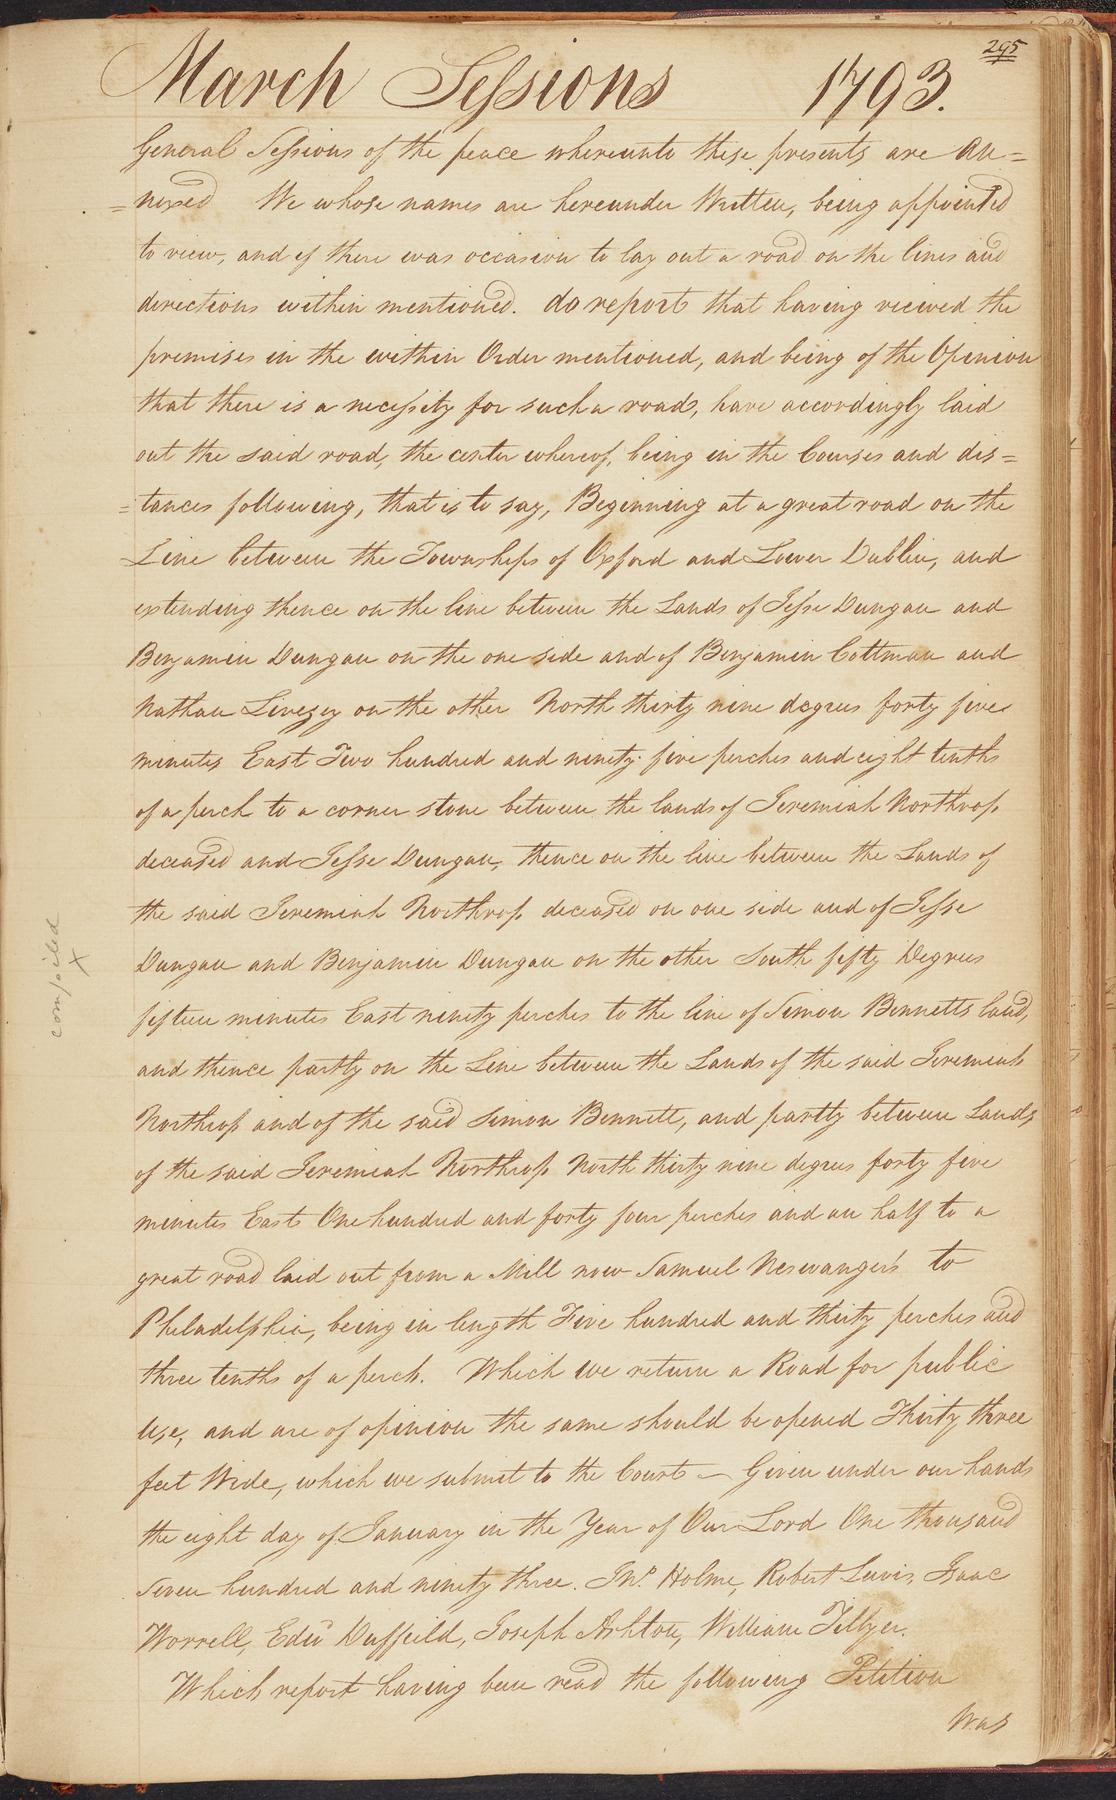 295
March Sessions 1793.
General Sessions of the peace whereunto these presents are An=
=nexed We whose names are hereunder Written, being appointed
to view, and if there was occasion to lay out a road on the lines and
directions within mentioned. do report that having viewed the
premises in the within Order mentioned, and being of the Opinion
that there is a necessity for such a road, have accordingly laid
out the said road, the center whereof, being in the Courses and dis=
=tances following, that is to say, Beginning at a great road on the
Line between the Townships of Oxford and Lower Dublin, and
extending thence on the line between the Lands of Jesse Dungan and
Benjamin Dungan on the one side and of Benjamin Cottman and
Nathan Livezey on the other North thirty nine degrees forty five
minutes East Two hundred and ninety five perches and eight tenths
of a perch to a corner stone between the lands of Jeremiah Northrop
deceased and Jesse Dungan, thence on the line between the Lands of
the said Jeremiah Northrop deceased on one side and of Jesse
Dungan and Benjamin Dungan on the other South fifty Degrees
fifteen minutes East ninety perches to the line of Simon Bennetts land,
and thence partly on the Line between the Lands of the said Jeremiah
Northrop and of the said Simon Bennett, and partly between Lands
of the said Jeremiah Northrop North thirty nine degrees forty five
minutes East One hundred and forty four perches and an half to a
great road laid out from a Mill now Samuel Neswanger's to
Philadelphia, being in length Five hundred and thirty perches and
three tenths of a perch. Which we return a Road for public
Use, and are of opinion the same should be opened Thirty three
feet Wide, which we submit to the Court — Given under our hands
the eight day of January in the Year of Our Lord One thousand
Seven hundred and ninety three. Jno. Holme, Robert Lewis, Isaac
Worrell, Edwd Duffeild, Joseph Ashton, William Tillyer.
Which report having been read the following Petition
Was
compiled
x